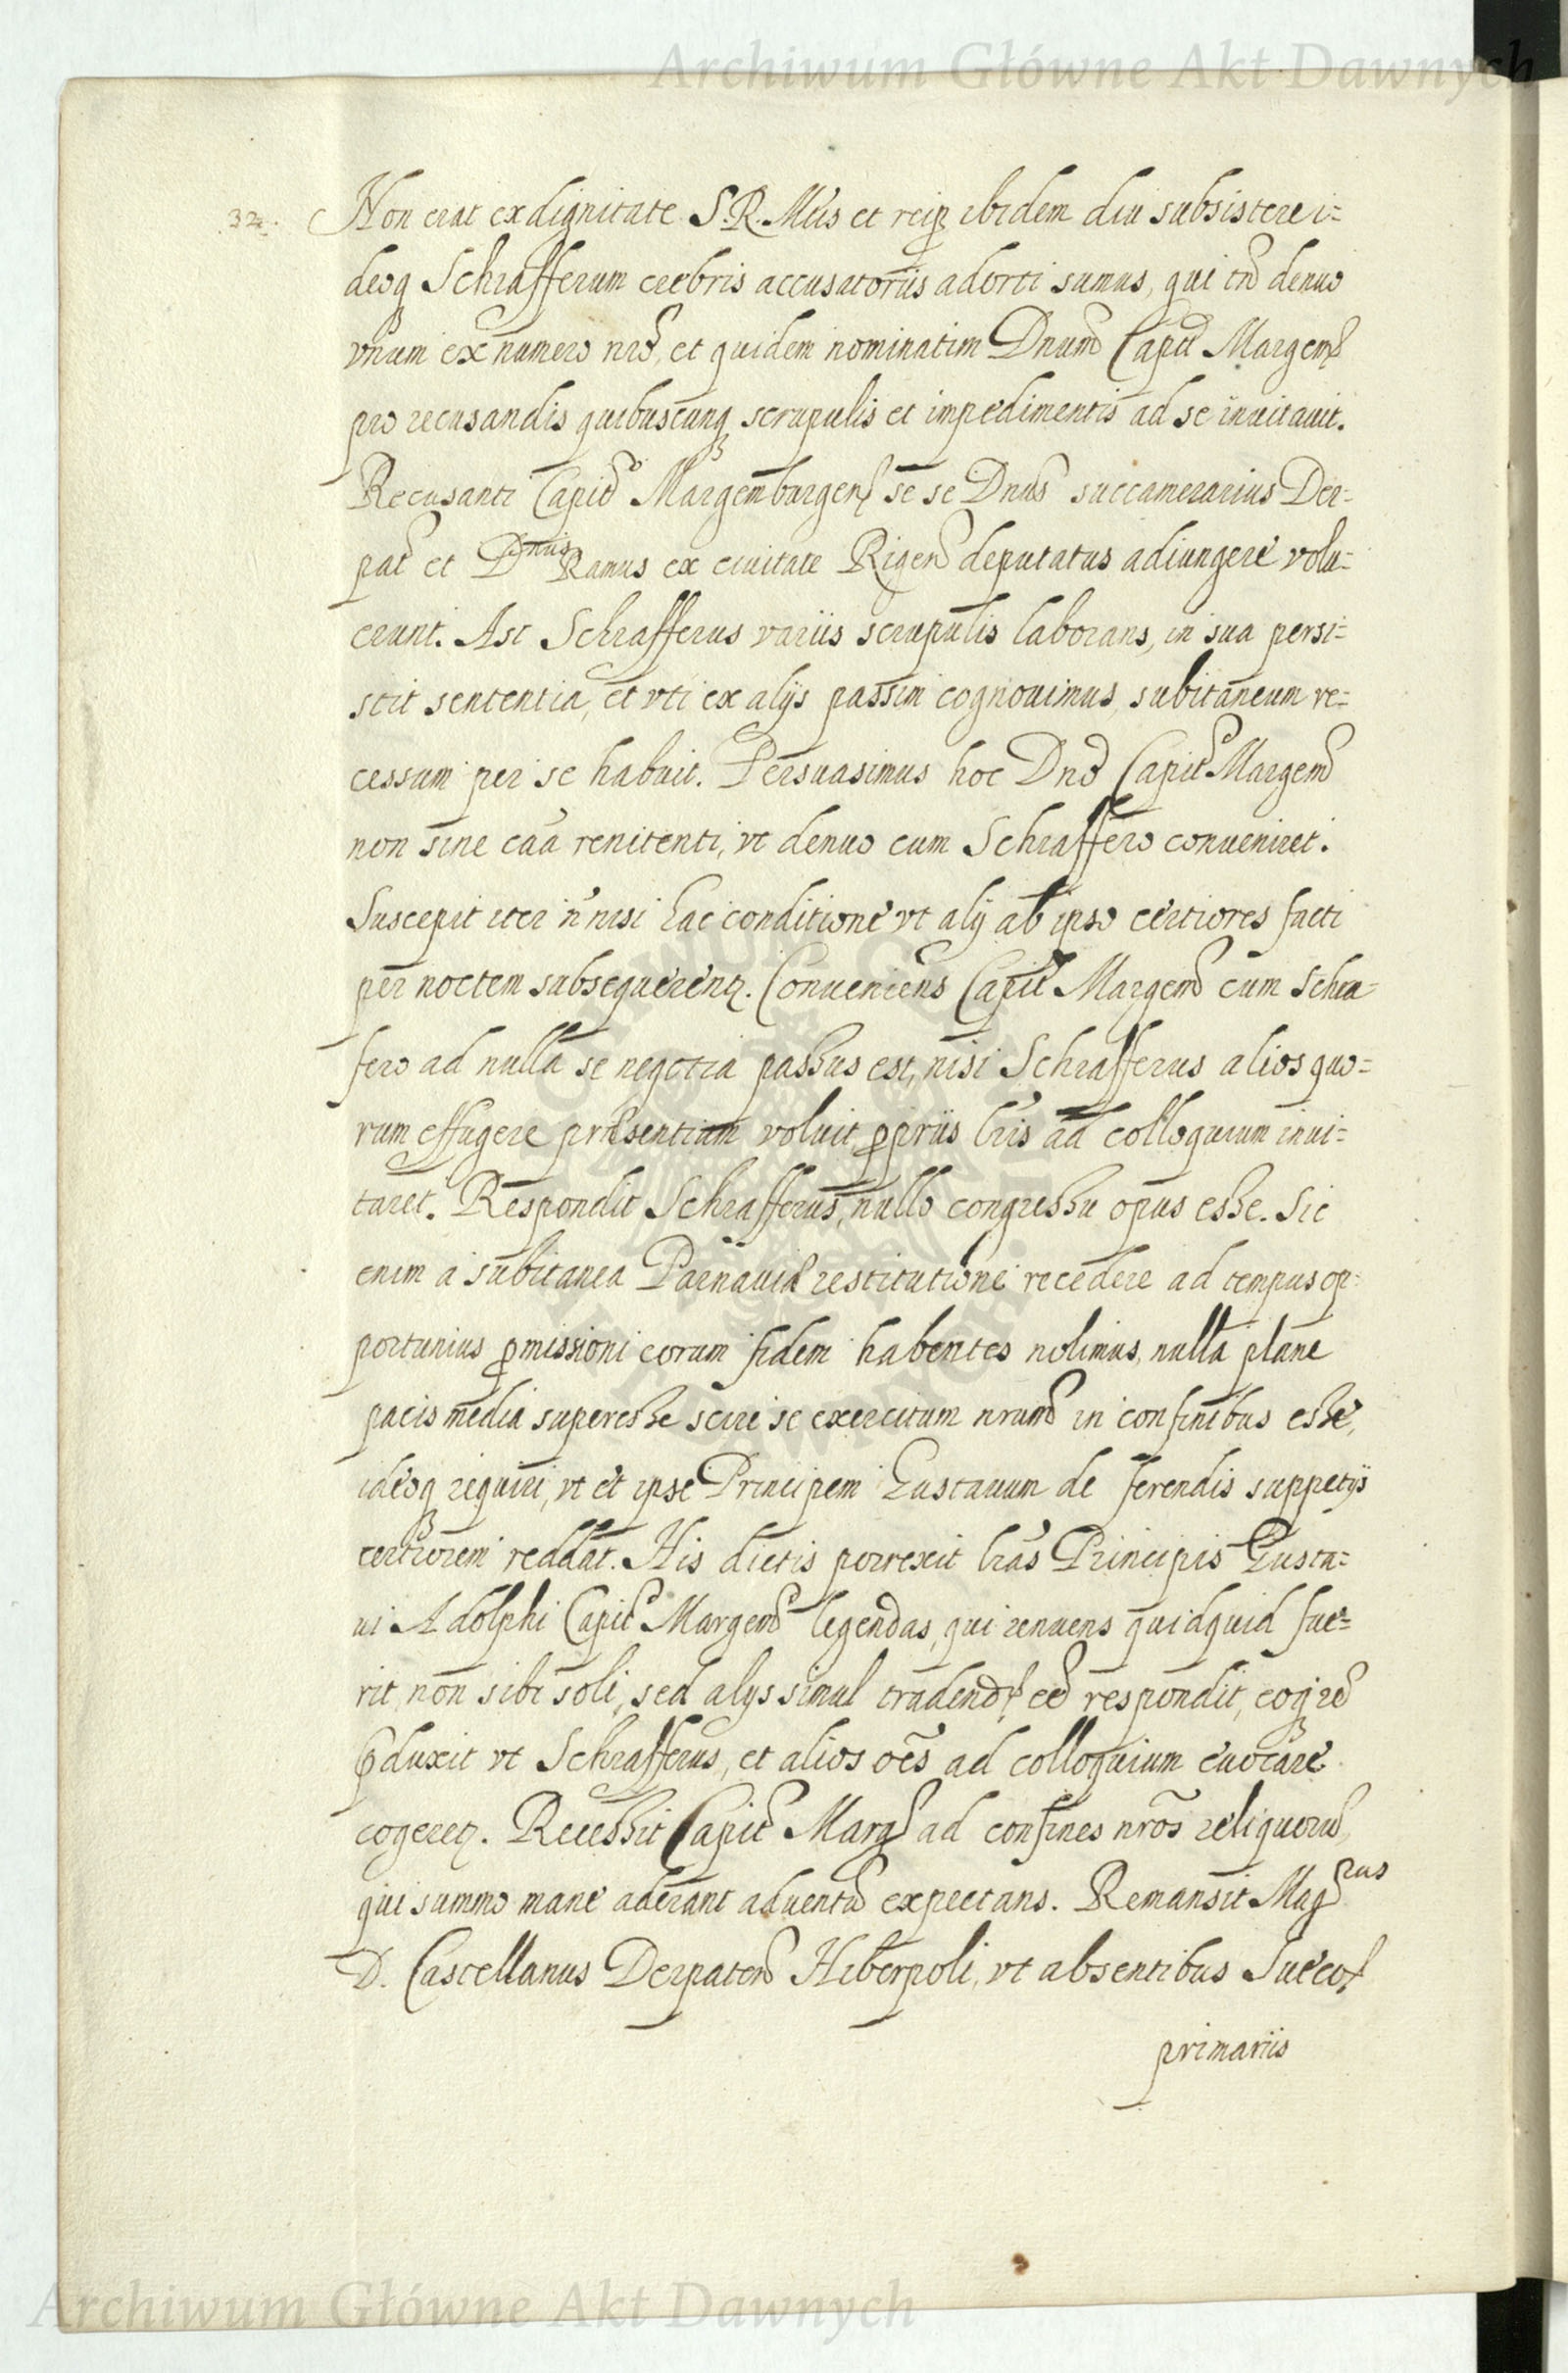 Archiwum Główne Akt Dawnych
32. Non erat ex dignitate S. R. Mtis et reip ibidem diu subsistere i=
deoq Schrafferum crebris accusatoriis adorti sumus, qui tn denuo
vnum ex numero nro, et quidem nominatim Dnum Capit Margem
pro recusandis quibuscunq scrupulis et impedimentis ad se inuitauit.
Recusanti Capit Margemburgen se se Dnus succamerarius Der=
pat et Dnus Ramus ex ciuitate Rigen deputatus adiungere volu=
erunt. Ast Schrafferus variis scrupulis laborans, in sua persi=
stit sententia, et vti ex alijs passim cognouimus, subitaneum re=
cessum per se habuit. Persuasimus hoc Dno Capit Margem
non sine caa renitenti, vt denuo cum Schraffero conueniret.
Suscepit iter n nisi hac conditione vt alij ab ipso certiores facti
per noctem subsequerentr. Conueniens Capit Margem cum Schra=
fero ad nulla se negotia passus est, nisi Schrafferus alios quo=
rum effugere præsentiam voluit, ppriis lris ad colloquium inui=
taret. Respondit Schrafferus, nullo congressu opus esse. Sic
enim a subitanea Parnauiæ restitutione recedere ad tempus op=
portunius pmissioni eorum fidem habentes nolimus, nulla plane
pacis media superesse scire se exercitum nrum in confinibus esse,
ideoq requiri, vt et ipse Principem Gustauum de ferendis suppetijs
certiorem reddat. His dictis porrexit lras Principis Gusta=
ui Adolphi Capit Margem legendas, qui renuens quidquid fue=
rit, non sibi soli, sed alijs simul tradend ee respondit, eoq rem
pduxit vt Schrafferus, et alios oes ad colloquium euocare
cogeretr. Recessit Capit Marg ad confines nros reliquoru,
qui summo mane aderant aduentu expectans. Remansit Mag cus
D. Castellanus Derpaten Hiberpoli, vt absentibus Sueco
primariis
Archiwum Główne Akt Dawnych